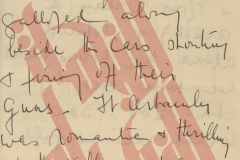 galloped along
beside the cars shouting
& firing off their
guns. It certainly
was romantic & thrilling